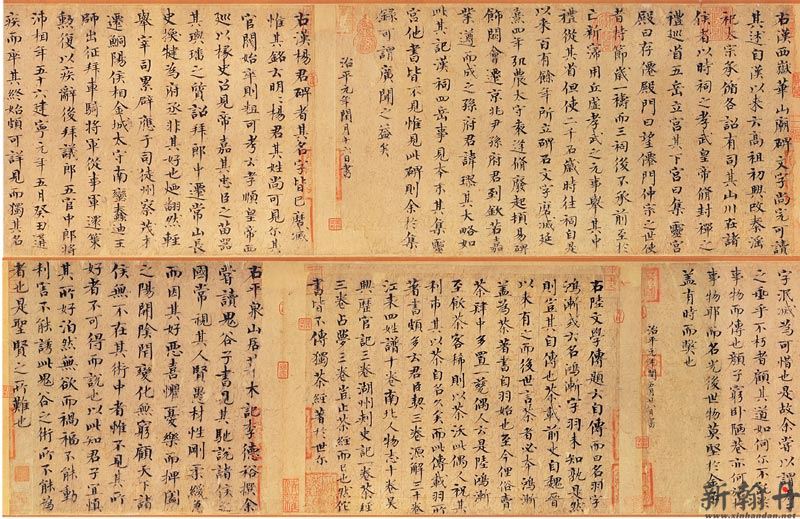 右漢西嶽華山廟碑文字尚完可讀
其述自漢以來云高祖初興改秦淫
祀太宗承循各詔有司其山川在諸
侯者以時祠之孝武皇帝脩封禪之
禮巡省五岳立宮其下宮曰集靈宮
殿曰存僊殿門曰望僊門仲宗之世使
者持節歲一禱而三祠後不承前至於
亡新寖用丘虛孝武之元事舉其中
禮從其省但使二千石歲時往祠自是
以來百有餘年所立碑石文字磨滅延
熹四年弘農太守袁逢脩廢起頓易碑
飾闕會遷京兆尹孫府君到欽若嘉
業遵而成之孫府君諱璆其大略如
此其記漢祠四岳事見本末其集靈
宮他書皆不見惟見此碑則余於集
錄可謂廣聞之益矣
治平元年閏月十六日書
右漢楊君碑者其名字皆已磨滅
惟其銘云明明楊君其姓尚可見尔其
官閥始卒則粗可考云孝順皇帝西
巡以椽史召見帝嘉其忠臣之苗器
其璵璠之質詔拜郎中遷常山長
史換犍為府丞非其好也迺翻然輕
舉宰司累辟應于司徒州察茂才
遷鮦陽侯相金城太守南蠻蠢迪王
師出征拜車騎將軍從事軍還策
勳復以疾辭後拜議郎五官中郎將
沛相年五十六建寧元年五月癸丑遘
疾而卒其終始頗可詳見而獨其名
字泯滅為可惜也是故余嘗以謂
之垂乎不朽者顧其道如何尔不託
事物而傳也顏子窮臥陋巷亦何
事物耶而名光後世物莫堅於
盖有時而弊也
治平元年閏五月
右陸文學傳題云自傳而曰名羽字
鴻漸或云名鴻漸字羽未知孰是然
則豈其自傳也茶載前史自魏晉
以來有之而後世言茶者必本鴻漸
盖為茶著書自羽始也至今俚俗賣
茶肆中多置一甆偶人云是陸鴻漸
至飲茶客稀則以茶沃此偶人祝其
利市其以茶自名久矣而此傳載羽所
著書頗多云君臣契三卷源解三十卷
江表四姓譜十卷南北人物志十卷吳
興歷官記三卷湖州刺史記一卷茶經
三卷占夢三卷豈止茶經而已也然佗
書皆不傳獨茶經著於世尔
右平泉山居草木記李德裕撰余
嘗讀鬼谷子書見其馳說諸侯之
國常視其人賢愚材性剛柔緩急
而因其好惡喜懼憂樂而捭闔
之陽開陰閉變化無窮顧天下諸
侯無不在其術中者惟不見其所
好者不可得而說也以此知君子宜慎
其所好泊然無欲而禍福不能動
利害不能誘此鬼谷之術所不能為
者也是聖賢之所難也
新翰丹
www.xinhandan.net